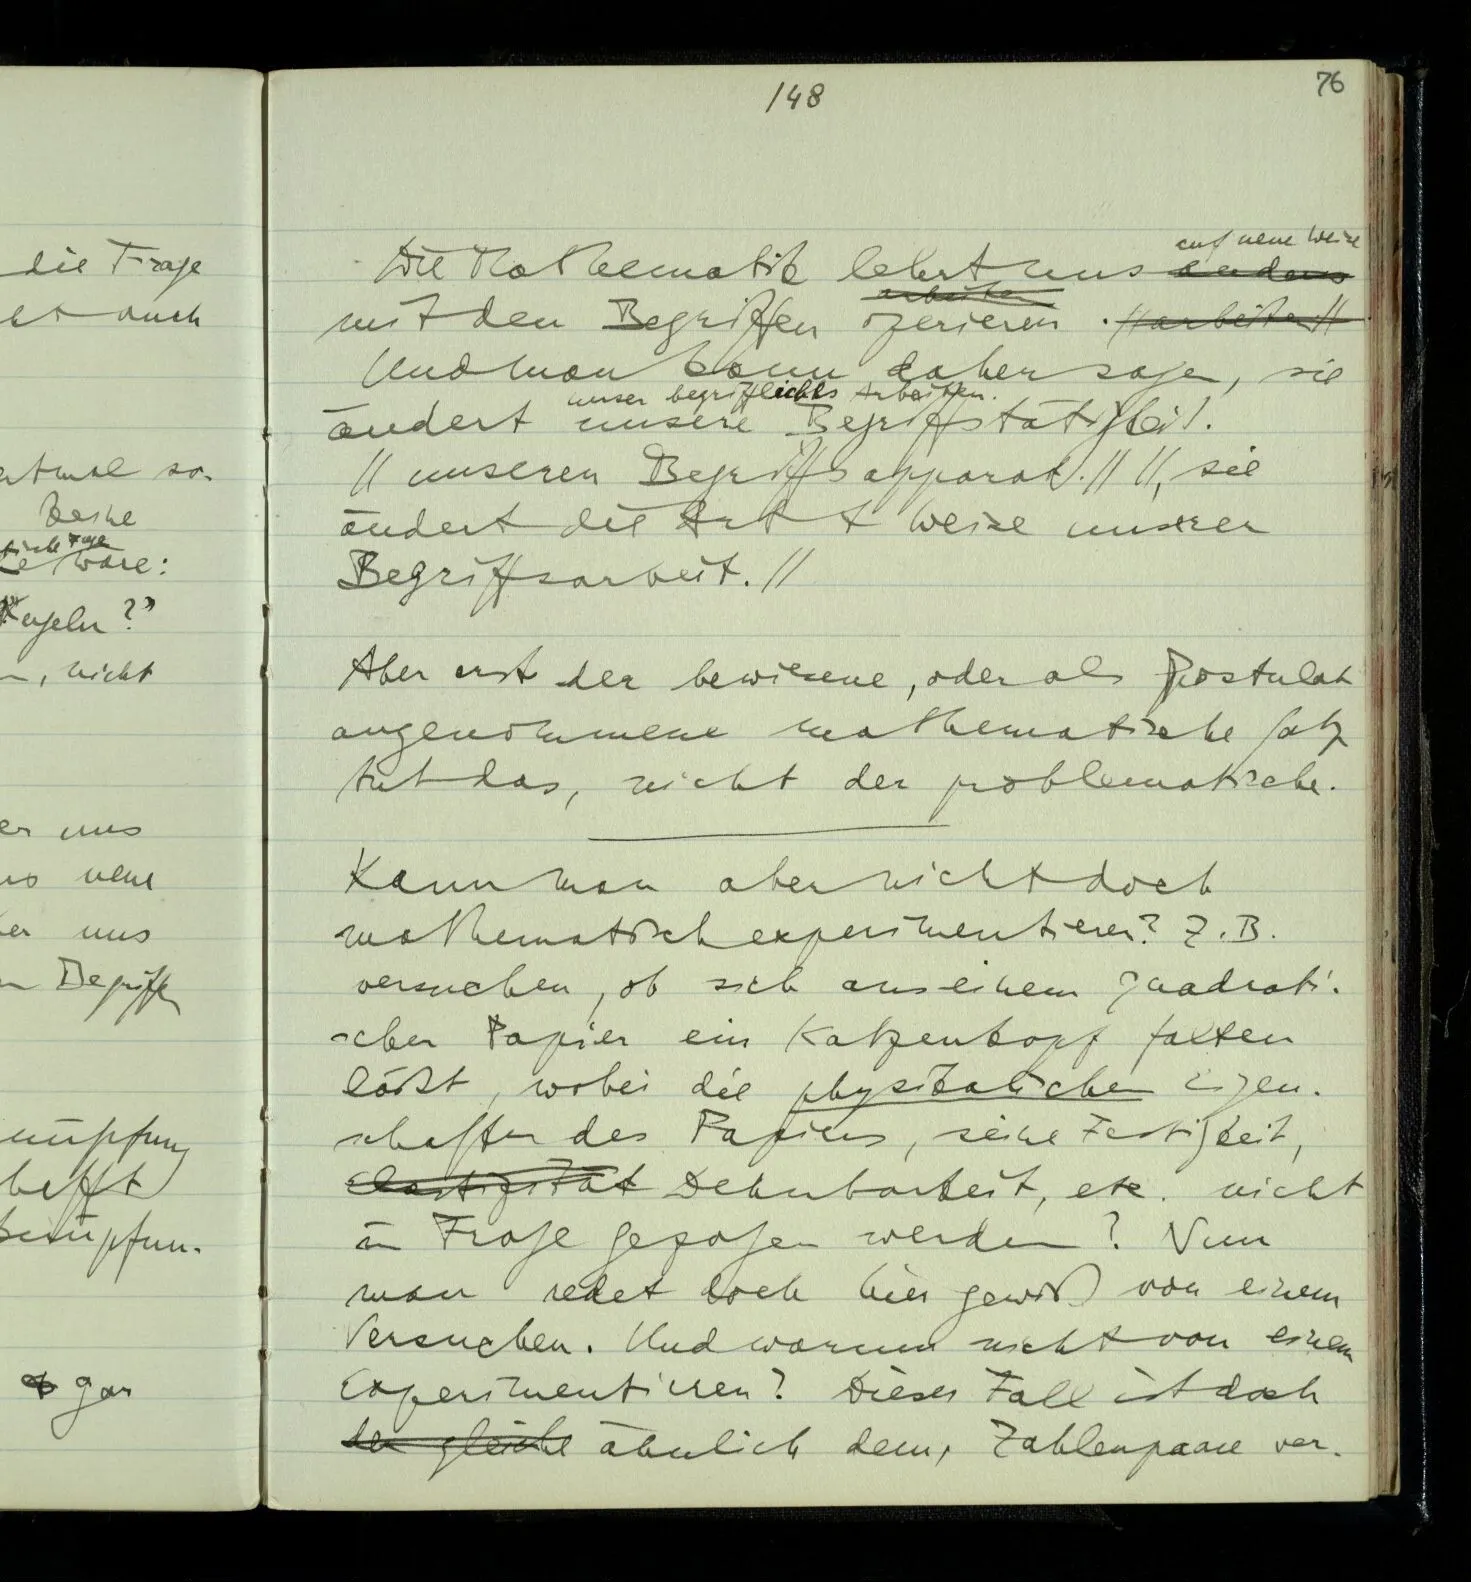 die Frage
auch
so-
keine
wäre:
Kugeln?"
, nicht
er uns
neue
uns
Begriffen
knüpfung
gar
148
76
auf neue Weise
Die Mathematik lehrt uns anders
arbeiten
mit den Begriffen operieren. //arbeiten//
Und man kann daher sagen, sie
unser begriffliches Arbeiten.
ändert unsere Begriffstätigkeit.
// unseren Begriffsapparat.// //, sie
ändert die Art + Weise unserer
Begriffsarbeit.//
Aber erst der bewiesene, oder als Postulat
angenommene mathematische Satz
tut das, nicht der problematische.
Kann man aber nicht doch
mathematisch experimentieren? Z.B.
versuchen, ob sich aus einem quadrati-
schen Papier ein Katzenkopf falten
läßt, wobei die physikalischen Eigen-
schaften des Papiers, seine Festigkeit,
Elastizität Dehnbarkeit, etc. nicht
in Frage gezogen werden? Nun
man redet doch hier gewiß von einem
Versuchen. Und warum nicht von einem
Experimentieren? Dieser Fall ist doch
der gleiche ähnlich dem, Zahlenpaare ver-